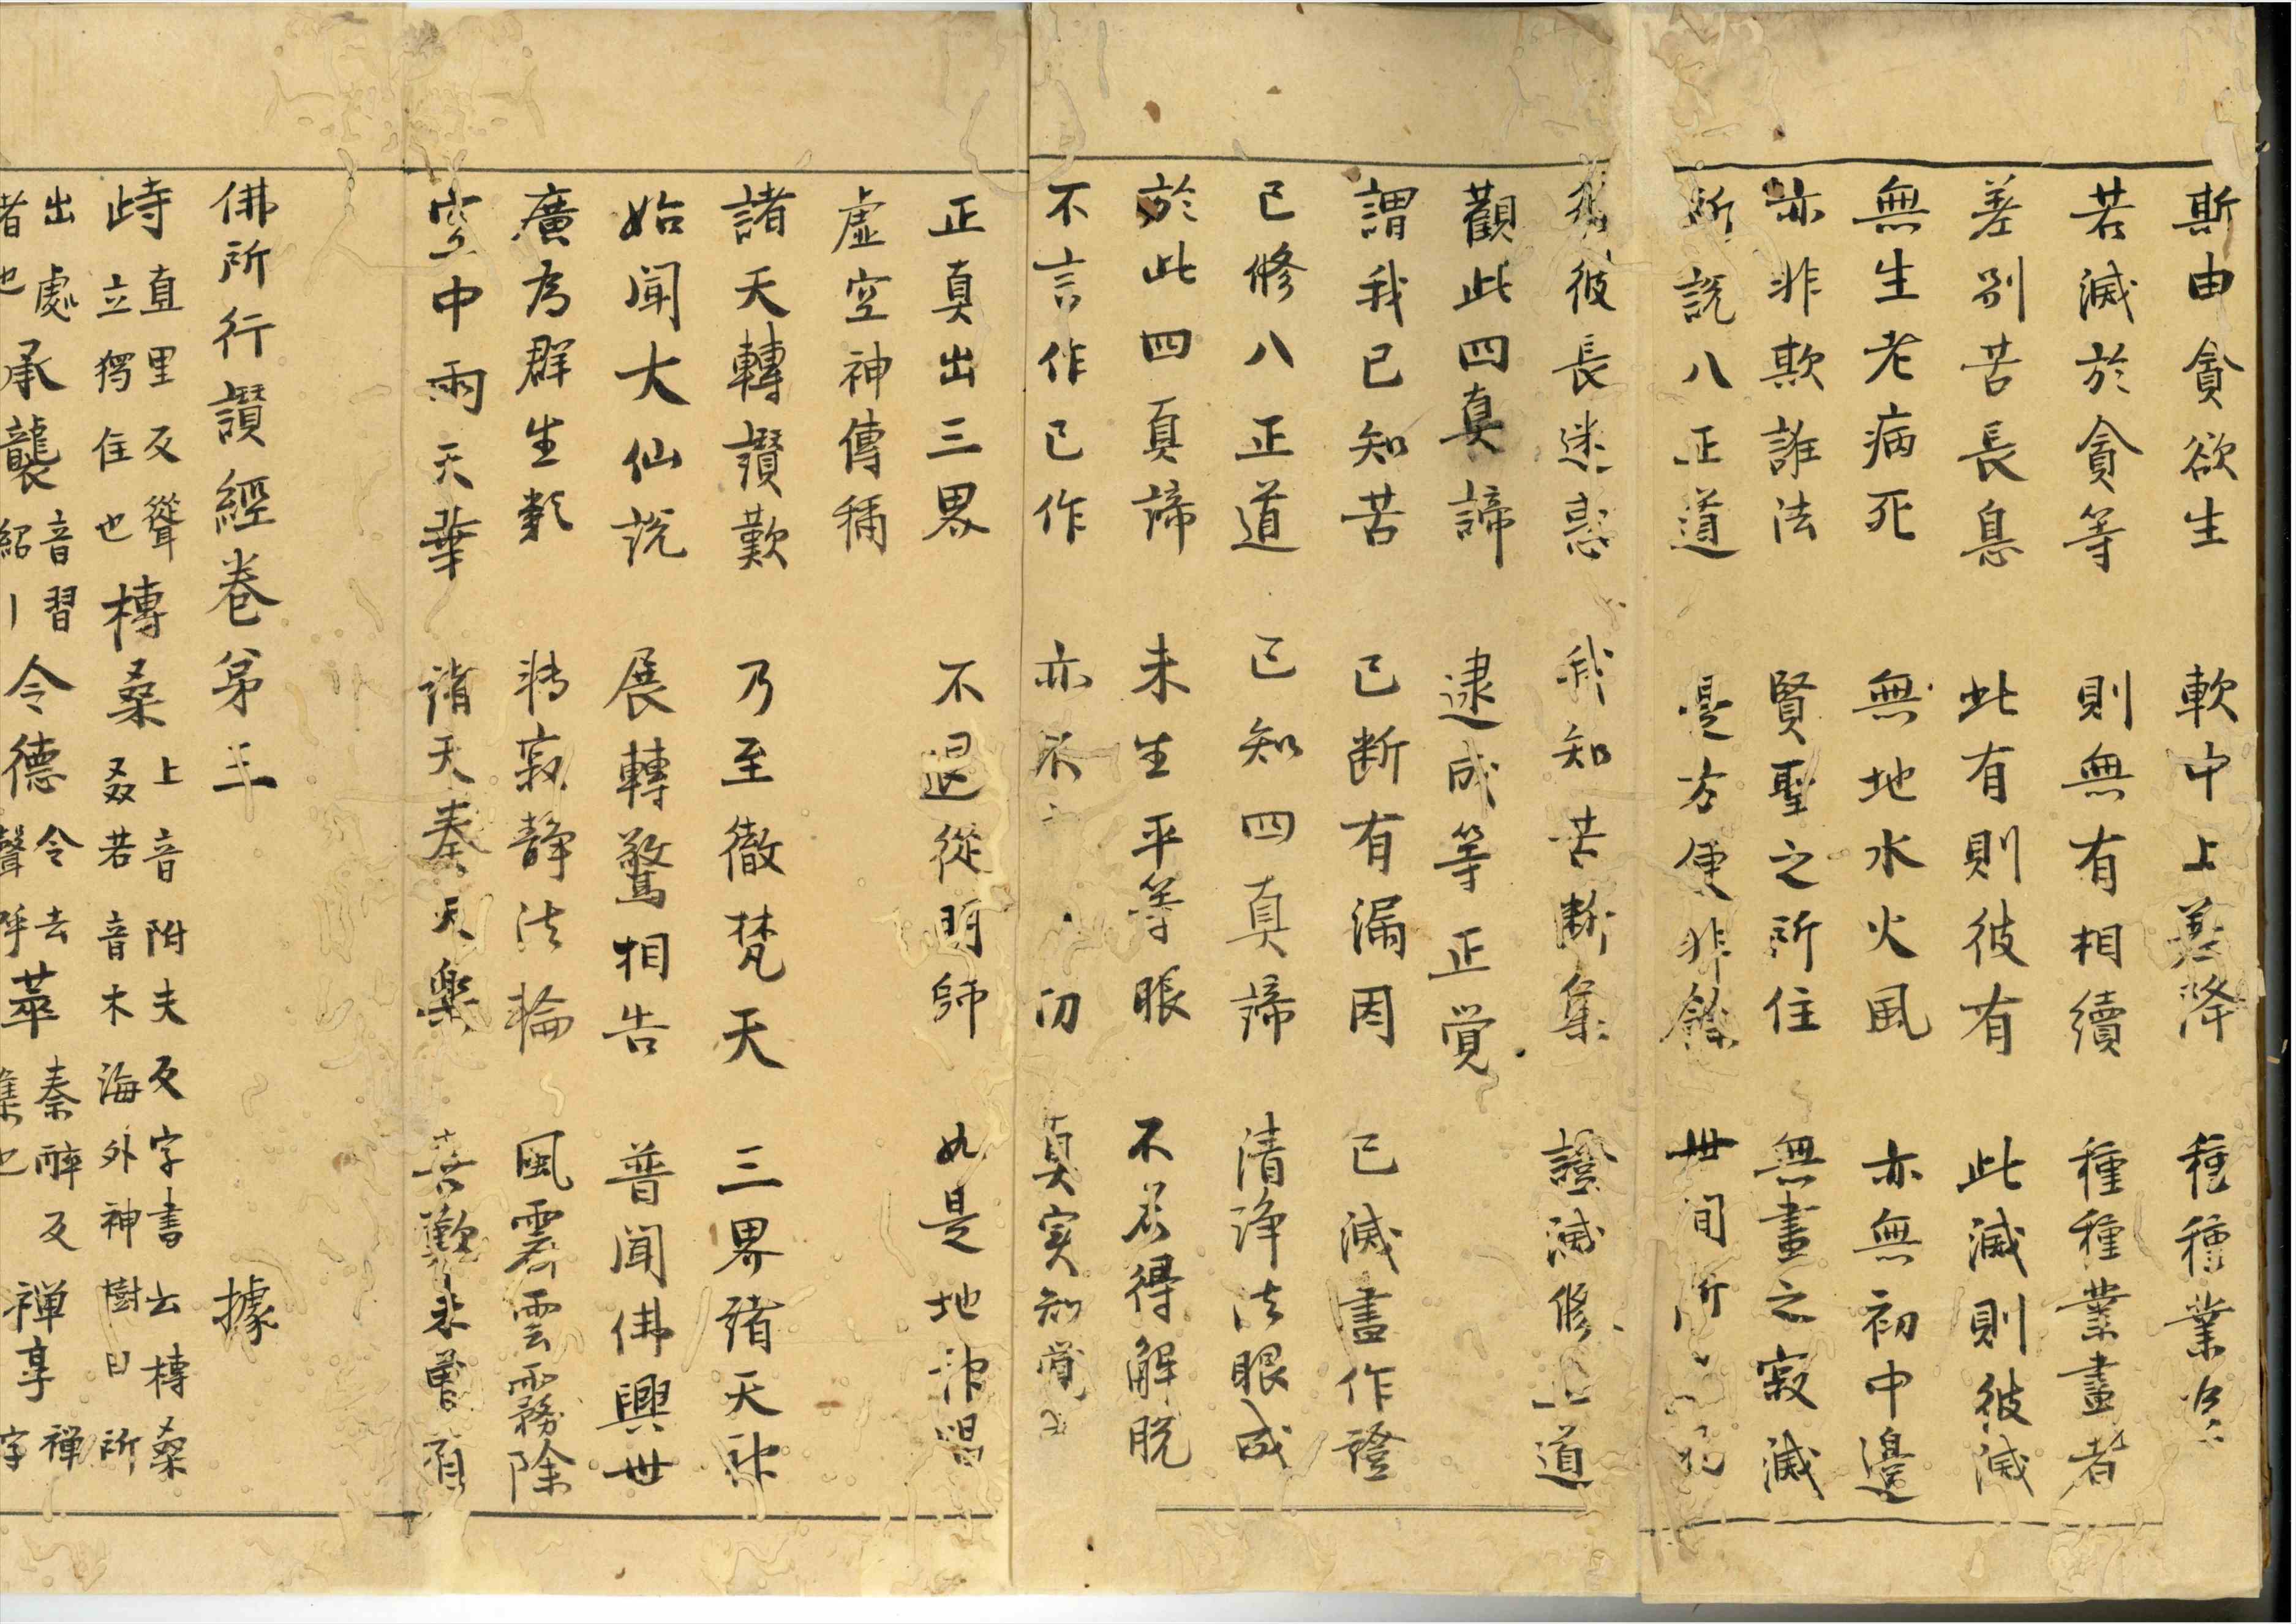 斯由貪欲生　軟中上差降　種種業
若滅於貪等　則無有相續　種種業盡者
差別苦長息　此有則彼有　此滅則彼滅
無生老病死　無地水火風　亦無初中邊
亦非欺誰法　賢聖之所住　無盡之寂滅
所說八正道　是方便非餘　世間所
彼長迷惑　我知苦斷集　證滅修正道
觀此四真諦　逮成等正覚
謂我已知苦　已断有漏因　已滅盡作證
已修八正道　已知四真諦　清淨法眼成
於此四真諦　未生平等眼　不名得解脫
不言作已作　亦不　真实知覺
正真出三界　不退從明師　如是地神唱
虛空神傳稱
諸天轉讚歎　乃至徹梵天　三界諸天神
始聞大仙說　展轉驚相告　普聞佛興世
廣為群生類　轉寂靜法輪　風霽雲霧除
空中雨天華　諸天奏天樂　嘉歎未曾有
佛所行讚經卷第三　據
峙直里反聳立獨住也　榑桑上音附夫反字書云榑桑叒若音木海外神樹日所
出處者也　承襲音習紹　令德令去聲呼　萃秦醉反集也　禅享禅字